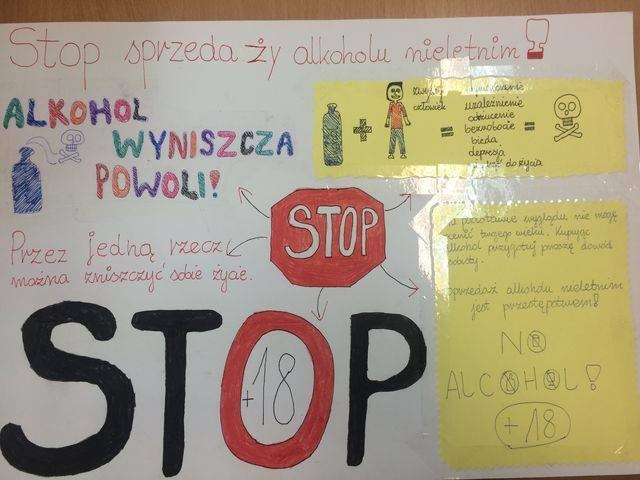 Stop sprzeda ży alkoholu nieletnim!
ALKOHOL
WYNISZCZA
POWOLI!
człowiek
uzależnienie
odrzucenie
bezrobocie
bieda
depresja
do życia
STOP
Przez jedną rzecz
można zniszczyć sobie życie.
STOP
+18
podstawie wyglądu nie mogę
twojego wieku. Kupując
alkohol przygotuj proszę dowód
osobisty.
sprzedaż alkoholu nieletnim
jest przestępstwem!
NO
ALCOHOL!
+18